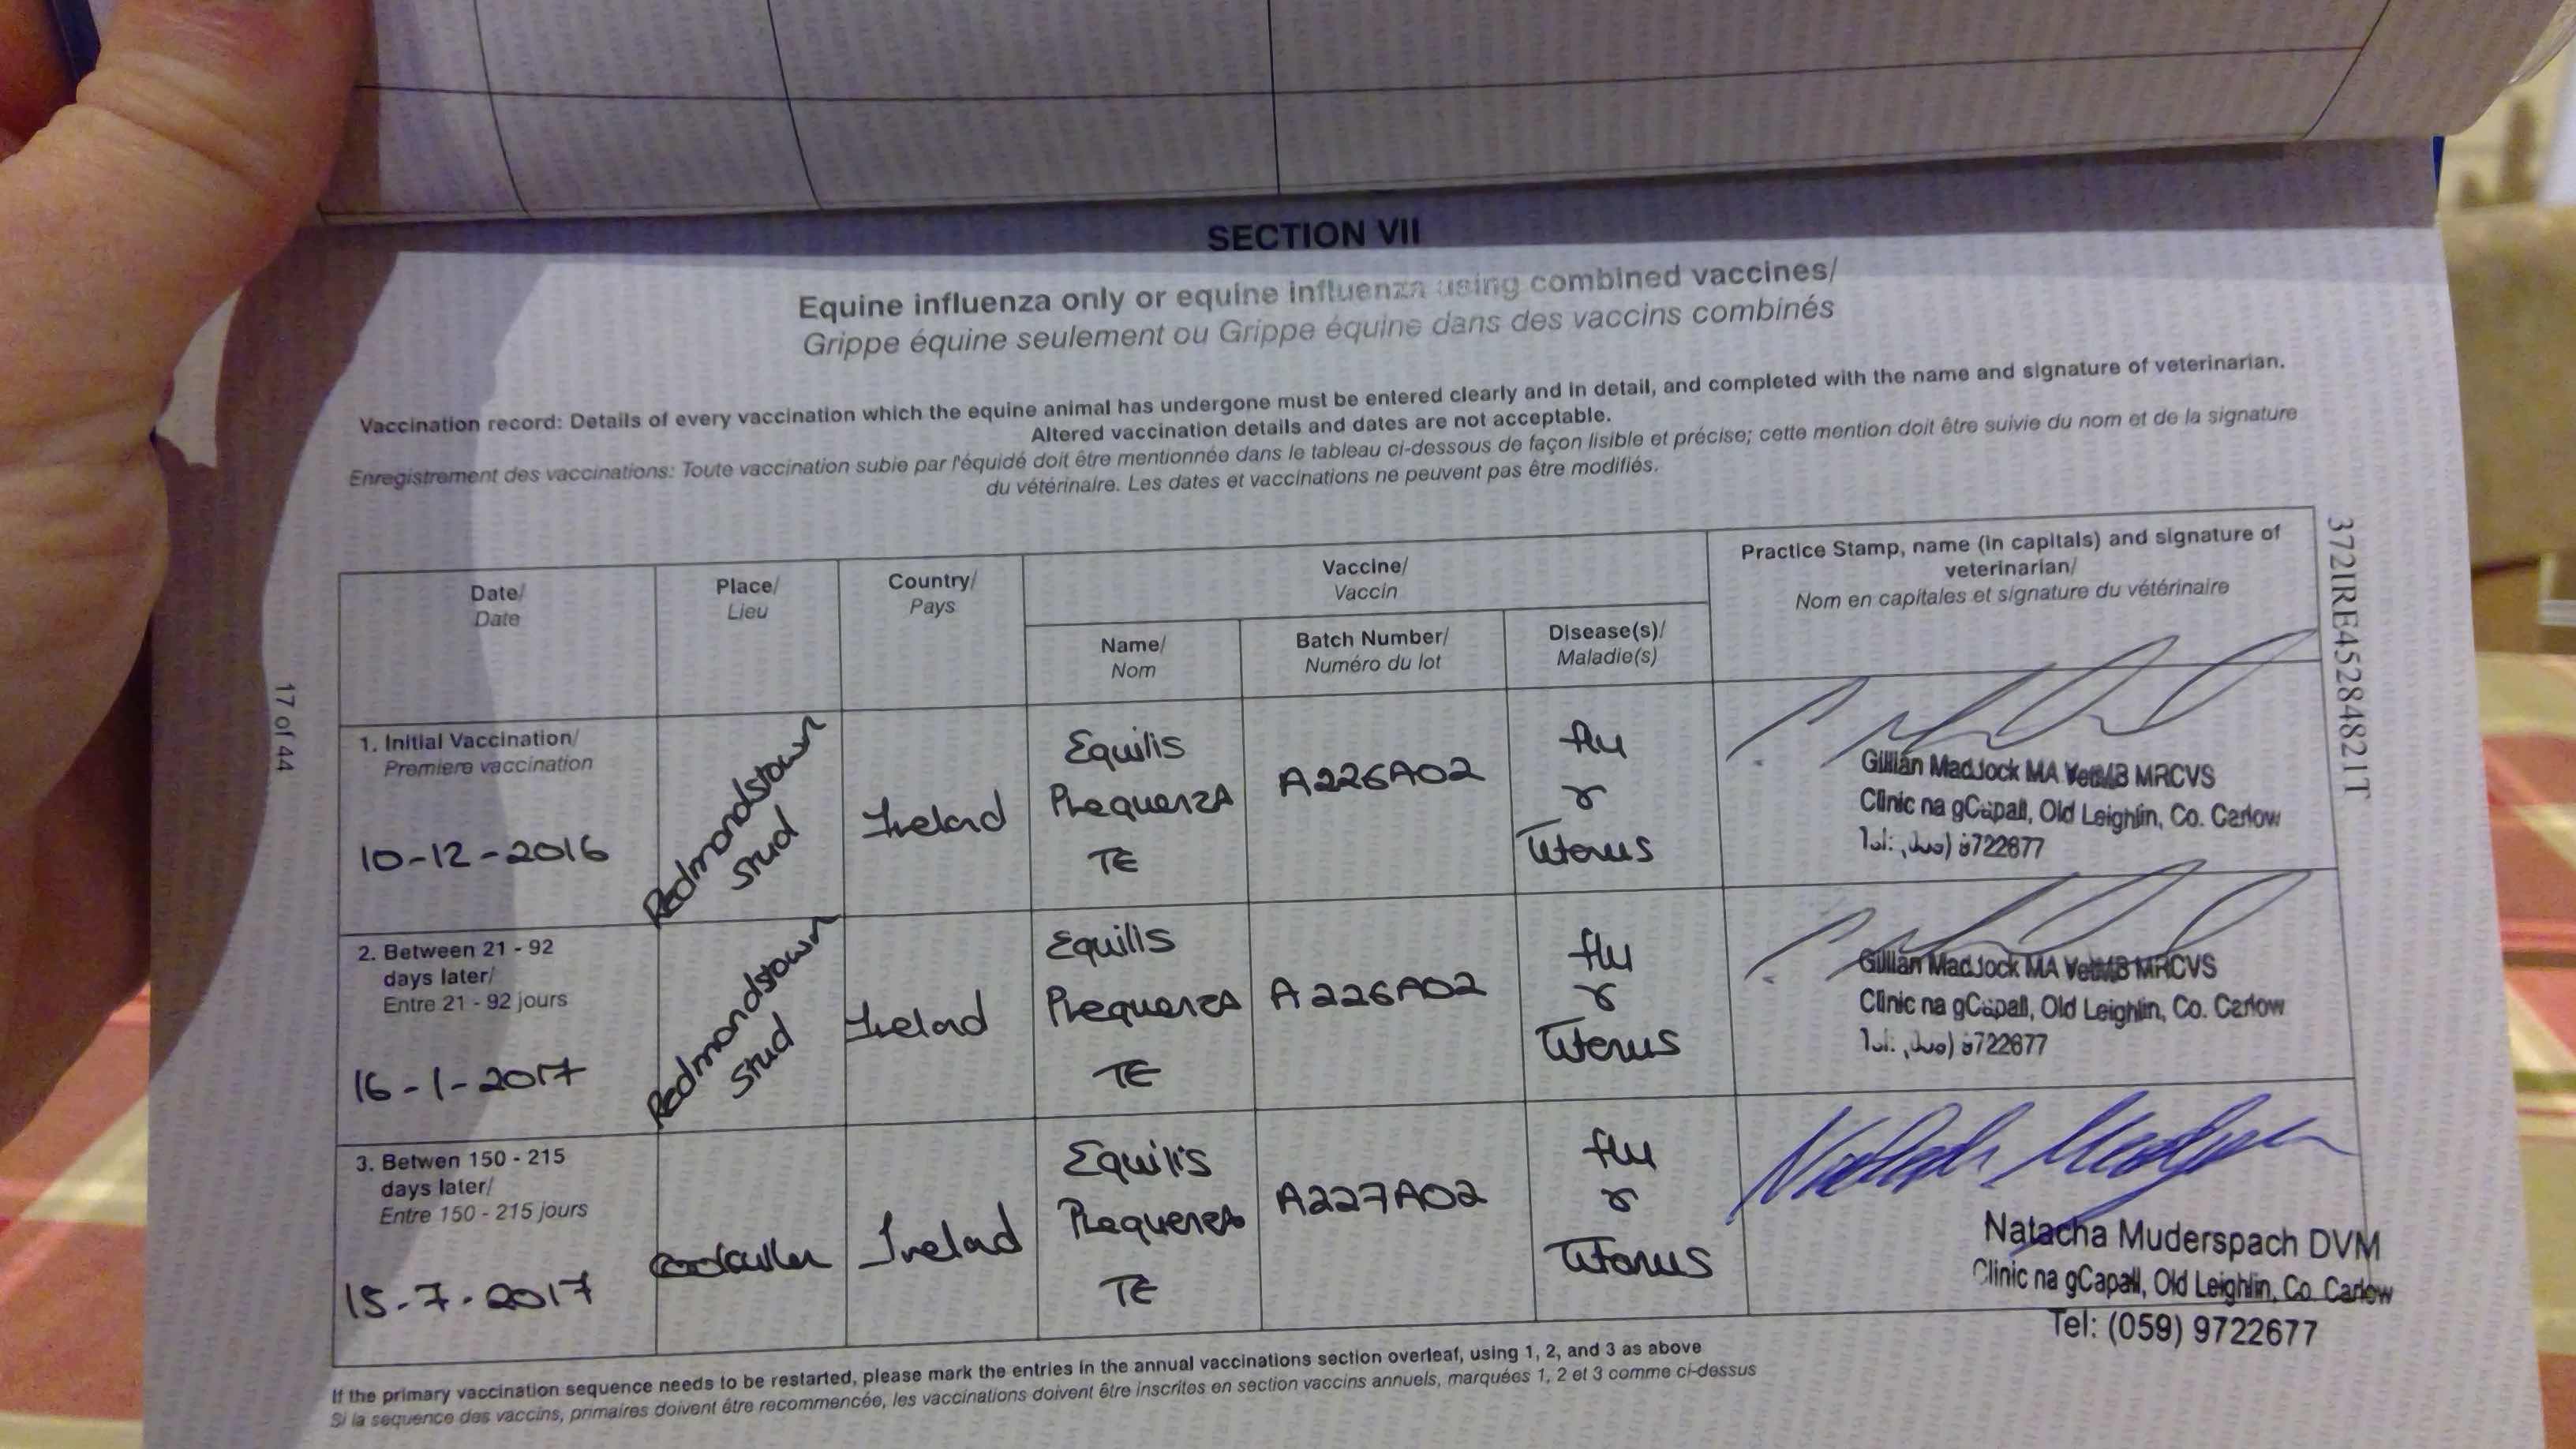 SECTION VII
Equine influenza only or equine influenza using combined vaccines/
Grippe équine seulement ou Grippe équine dans des vaccins combinés
Vaccination record: Details of every vaccination which the equine animal has undergone must be entered clearly and in detail, and completed with the name and signature of veterinarian.
Altered vaccination details and dates are not acceptable.
Enregistrement des vaccinations: Toute vaccination subie par l'équidé doit être mentionnée dans le tableau ci-dessous de façon lisible et précise; cette mention doit être suivie du nom et de la signature
du vétérinaire. Les dates et vaccinations ne peuvent pas être modifiés.
372IRE45284821T
17 of 44
Date/
Date
Place/
Lieu
Country/
Pays
Vaccine/
Vaccin
Name/
Nom
Batch Number/
Numéro du lot
Disease(s)/
Maladie(s)
Practice Stamp, name (in capitals) and signature of
veterinarian/
Nom en capitales et signature du vétérinaire
1. Initial Vaccination/
Premiere vaccination
10-12-2016
Redmondstown
Stud
Ireland
Equilis
Prequenza
TE
A226A02
flu
&
Tetanus
Gillian MA VetMB MRCVS
Clinic na gCapall, Old Leighlin, Co. Carlow
2. Between 21 - 92
days later/
Entre 21 - 92 jours
16-1-2017
Redmondstown
Stud
Ireland
Equilis
Prequenza
TE
A226A02
flu
&
Tetanus
Gillian MA VetMB MRCVS
Clinic na gCapall, Old Leighlin, Co. Carlow
3. Betwen 150 - 215
days later/
Entre 150 - 215 jours
15-7-2017
Ireland
Equilis
Prequenza
TE
A227A02
flu
&
Tetanus
Natacha Muderspach DVM
Clinic na gCapall, Old Leighlin, Co. Carlow
Tel: (059) 9722677
If the primary vaccination sequence needs to be restarted, please mark the entries in the annual vaccinations section overleaf, using 1, 2, and 3 as above
Si la sequence des vaccins, primaires doivent être recommencée, les vaccinations doivent être inscrites en section vaccins annuels, marquées 1, 2 et 3 comme ci-dessus